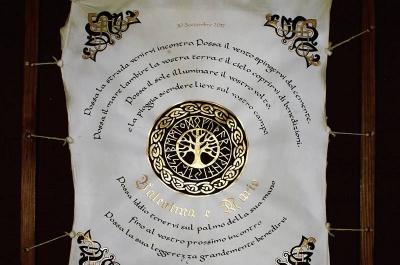 30 Settembre 2017
Possa la strada venirvi incontro Possa il vento spingervi dolcemente
Possa il mare lambire la vostra terra e il cielo coprirvi di benedizioni.
Possa il sole illuminare il vostro volto
e la pioggia scendere lieve sul vostro campo
Valentina e Dario
Possa Iddio tenervi sul palmo della sua mano
fino al vostro prossimo incontro
Possa la sua leggerezza grandemente benedirvi